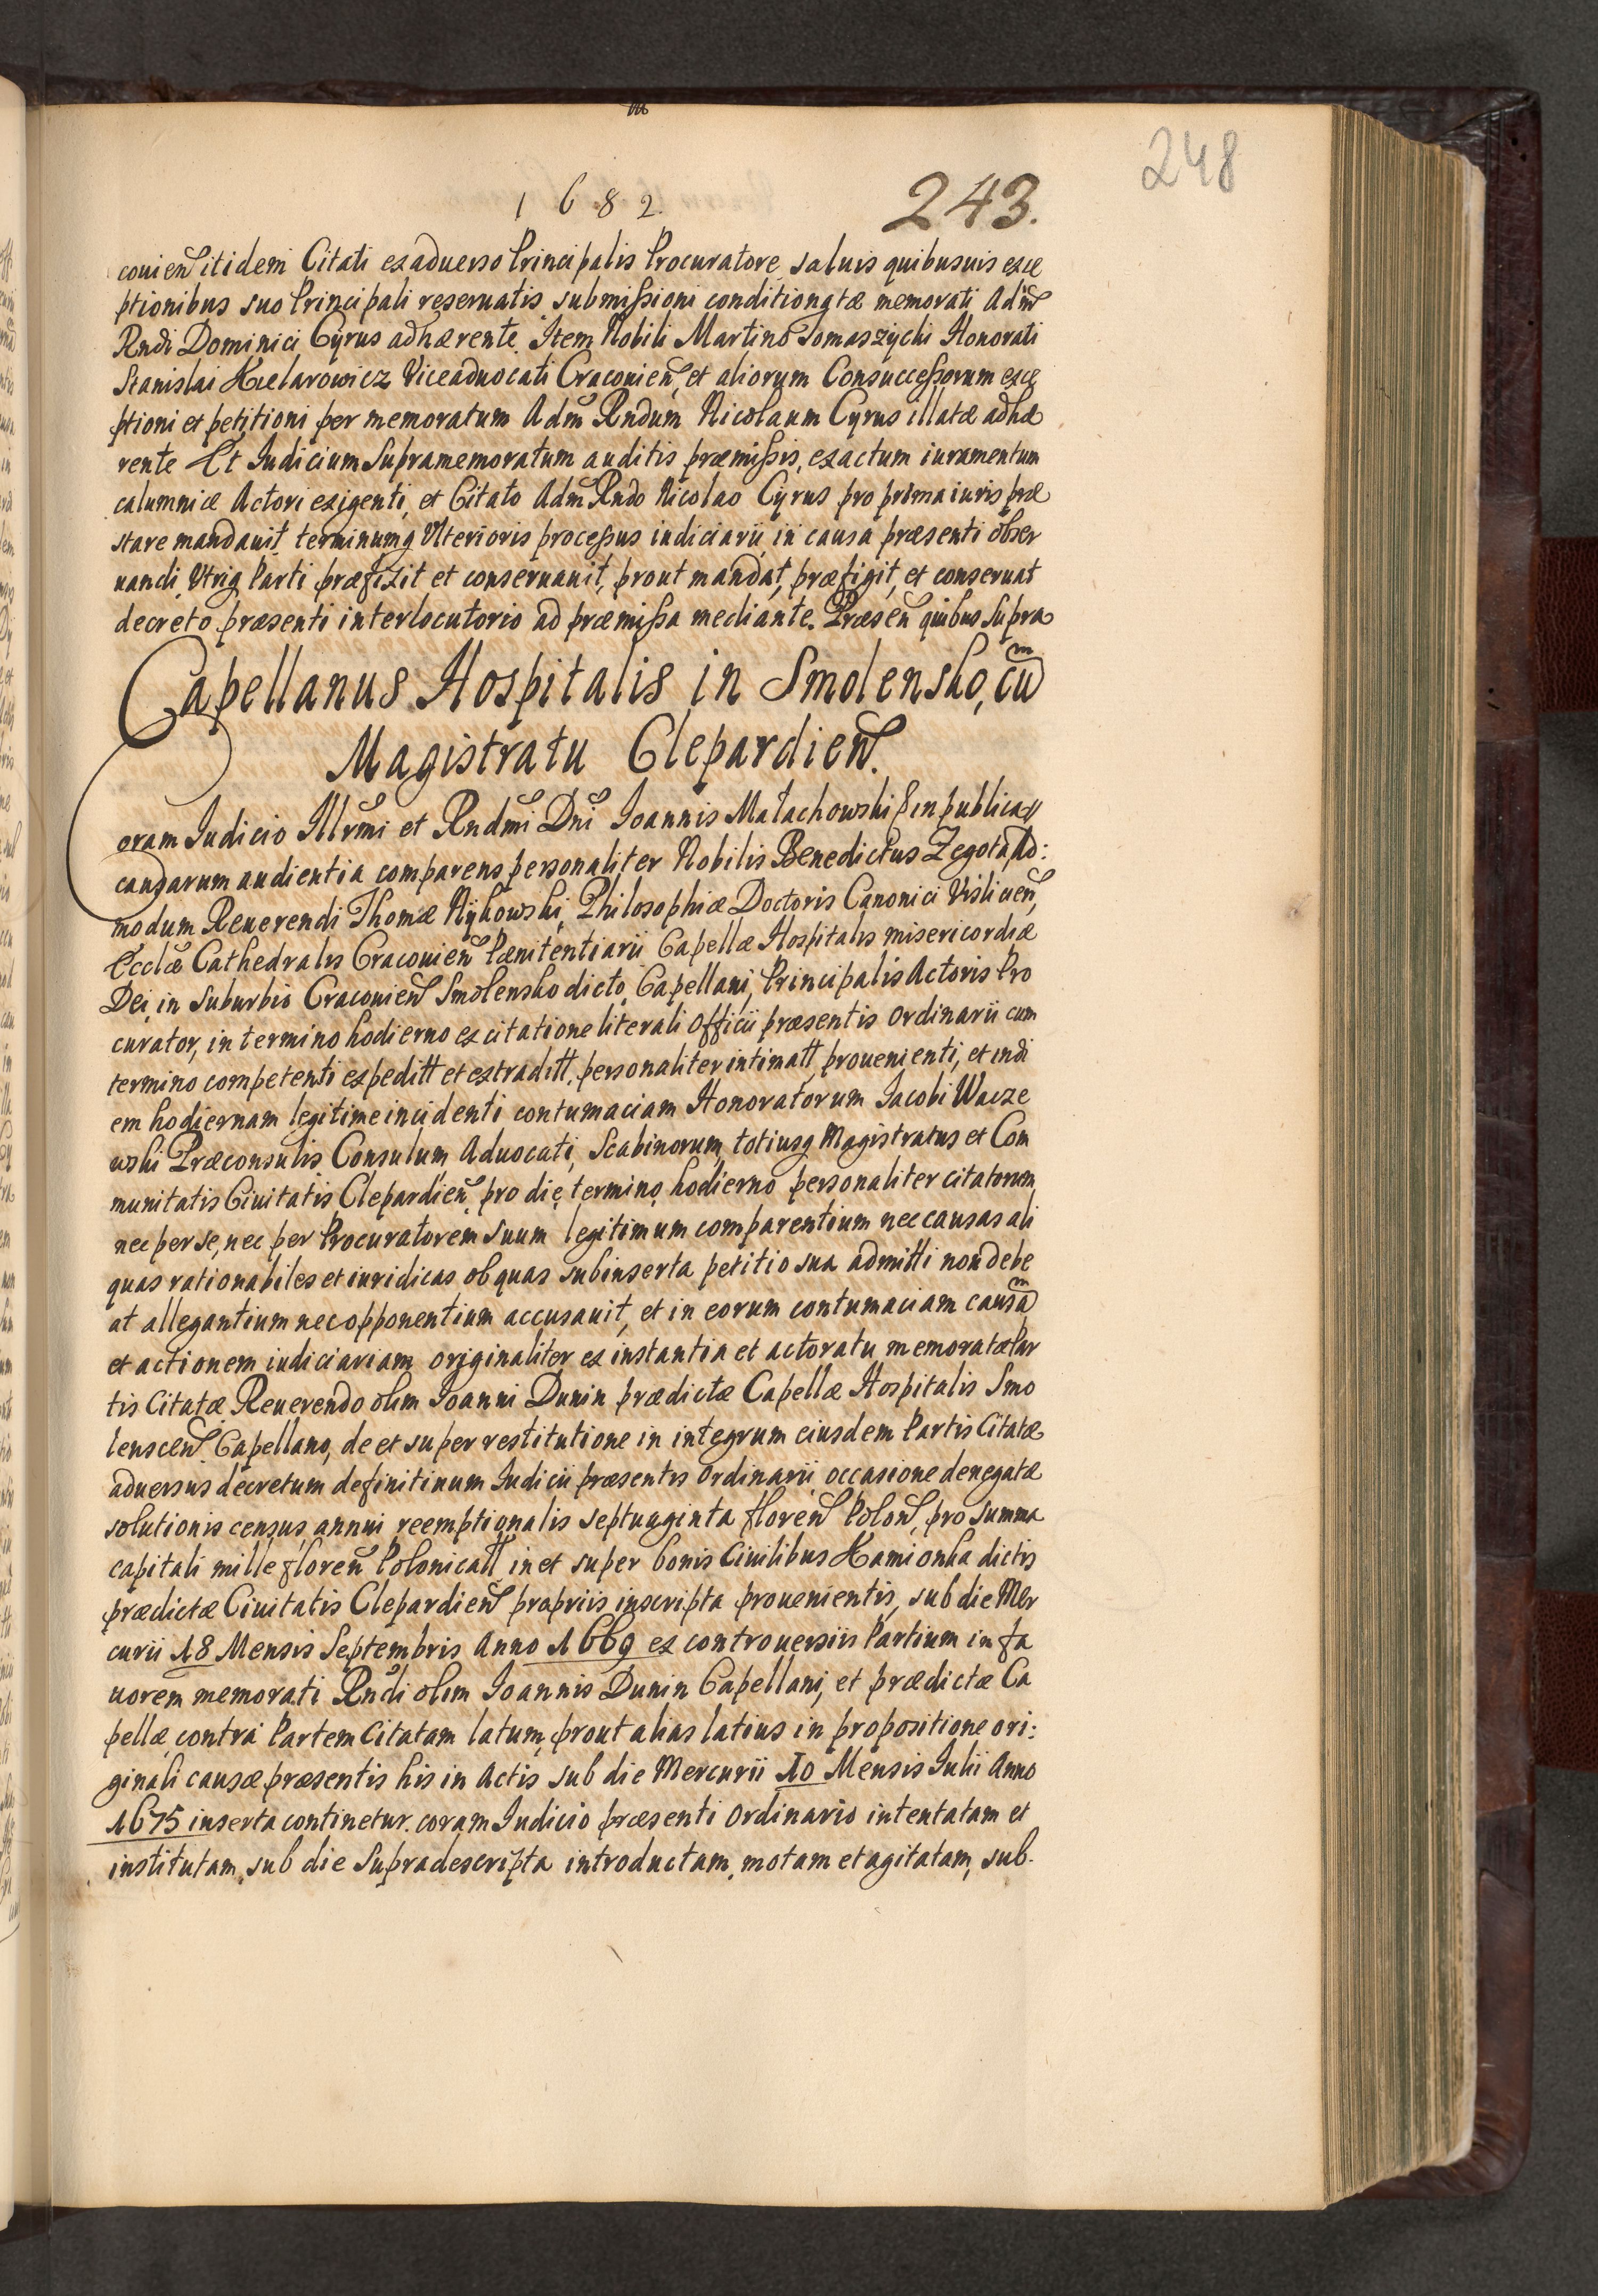 248
1682.
243.
couien̄ itidem Citati ex aduerso Principalis Procuratore, saluis quibusuis exce
ptionibus suo Principali reseruatis submißioni conditionatæ memorati Adm̄
Rndi Dominici Cyrus adhærente. Item Nobili Martino Tomaszycki Honorati
Stanislai Kielarowicz Viceaduocati Cracouien̄, et aliorum Consucceßorum exce
ptioni et petitioni per memoratum Adm̄ Rndum Nicolaum Cyrus illatæ adhæ
rente Et Iudicium Supramemoratum auditis præmißis, exactum iuramentum
calumniæ Actori exigenti, et Citato Adm̄ Rndo Nicolao Cyrus pro prima iuris præ
stare mandauit, terminumq Vlterioris proceßus iudiciarii in causa præsenti obser
uandi, Vtriq Parti præfixit et conseruauit, prout mandat, præfigit, et conseruat
decreto præsenti interlocutorio ad præmißa mediante. Præsen̄ quibus Supra
Capellanus Hospitalis in Smolensko, cū
Magistratu Clepardien̄.
Coram Iudicio Illrm̄i et Rndm̄i Dn̄i Ioannis Małachowski & in publica
causarum audientia comparens personaliter Nobilis Benedictus Zegota, Ad:
modum Reuerendi Thomæ Nykowski, Philosophiæ Doctoris Canonici Vislicien̄,
Ecclæ Cathedralis Cracouien̄ Pænitentiarii Capellæ Hospitalis misericordiæ
Dei in suburbio Cracouien̄ Smolensko dicto, Capellani, Principalis Actoris Pro
curator, in termino hodierno ex citatione literali Officii præsentis Ordinarii cum
termino competenti expeditt et extraditt, personaliter intimatt, prouenienti, et in di
em hodiernam legitime incidenti contumaciam Honoratorum Iacobi Wacze
wski Præconsulis, Consulum, Aduocati, Scabinorum, totiusq Magistratus et Com
munitatis Ciuitatis Clepardien̄ pro die, termino, hodierno personaliter citatorum
nec per se, nec per Procuratorem suum legitimum comparentium nec causas ali
quas rationabiles et iuridicas ob quas subinserta petitio sua admitti non debe
at allegantium nec opponentium accusauit, et in eorum contumaciam causā
et actionem iudiciariam originaliter ex instantia et actoratu memoratæ Par
tis Citatæ Reuerendo olim Ioanni Dunin prædictæ Capellæ Hospitalis Smo
lenscen̄ Capellano, de et super restitutione in integrum eiusdem Partis Citatæ
aduersus decretum definitiuum Iudicii præsentis Ordinarii occasione denegatæ
solutionis census annui reemptionalis septuaginta floren̄ Polon̄, pro summa
capitali mille floren̄ Polonicatt in et super bonis Ciuilibus Kamionka dictis
prædictæ Ciuitatis Clepardien̄ propriis inscripta prouenientis, sub die Mer
curii 18 Mensis Septembris Anno 1669 ex controuersiis Partium in fa
uorem memorati Rndi olim Ioannis Dunin Capellani, et prædictæ Ca
pellæ contra Partem Citatam latum, prout alias latius in propositione ori:
ginali causæ præsentis his in Actis sub die Mercurii 10 Mensis Iulii Anno
1675 inserta continetur. coram Iudicio præsenti Ordinario intentatam et
institutam, sub die Supradescripta introductam, motam et agitatam, sub